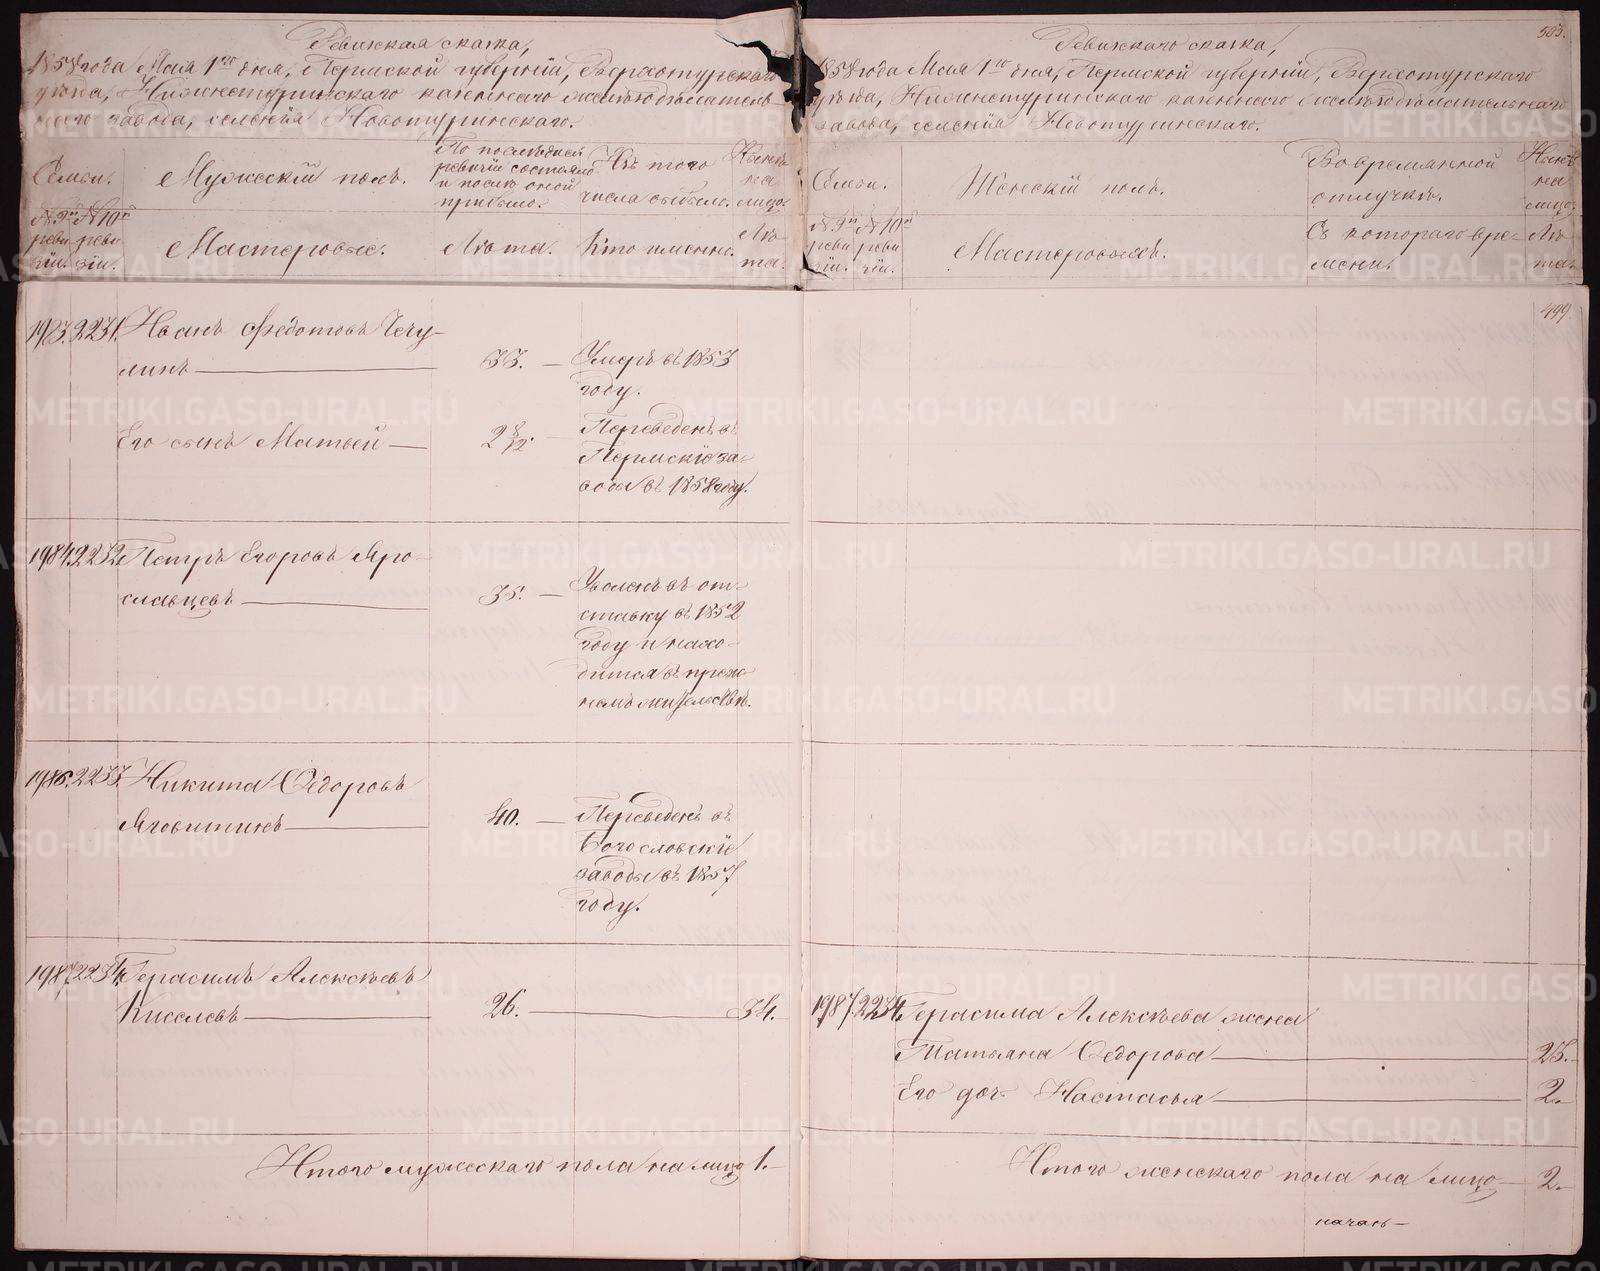 Ревизская сказка,
1858 года Мая 1го дня, Пермской губернiи, Верхотурскаго
уѣзда, Нижнетуринскаго казеннаго желѣзодѣлатель-
наго завода, селенiя Новотуринскаго.
Семьи.
Мужескiй полъ.
По послѣдней
ревизiи состояло
и послѣ оной
прибыло.
Изъ того
числа выбыло.
Нынѣ
на
лицо.
№ 9й
реви
зiи.
№ 10й
реви
зiи.
Мастеровые.
Лѣта.
Кто именно.
Лѣ
та.
1983. 2231. Иванъ Федотовъ Чечу-
линъ 33. Умеръ въ 1853
году.
Его сынъ Матвей 2 8/12. Переведенъ въ
Пермскiе за-
воды въ 1858 году.
1984. 2232. Петръ Егоровъ Яро-
славцевъ 35. Уволенъ въ от-
ставку въ 1852
году и нахо-
дится въ преж-
немъ жительствѣ.
1986. 2233. Никита Ѳедоровъ
Яговитинъ 40. Переведенъ въ
Богословскiе
заводы въ 1857
году.
1987. 2234. Герасимъ Алексѣевъ
Киселевъ 26. 34.
Итого мужескаго пола на лицо 1.
505.
Ревизскаго сказка,
1858 года Мая 1го дня, Пермской губернiи, Верхотурскаго
уѣзда, Нижнетуринскаго казеннаго желѣзодѣлательнаго
завода, селенiя Новотуринскаго.
Семьи.
Женскiй полъ.
Во временной
отлучкѣ.
Нынѣ
на
лицо.
№ 9й
реви
зiи.
№ 10й
реви
зiи.
Мастеровыхъ.
Съ котораго вре-
мени.
Лѣ
та.
499.
1987. 2234. Герасима Алексѣева жена
Татьяна Ѳедорова 28.
Его доч. Настасья 2.
Итого женскаго пола на лицо 2.
METRIKI.GASO-URAL.RU